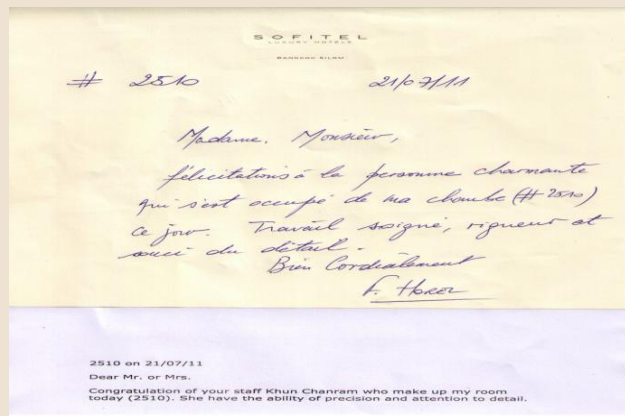 SOFITEL
LUXURY HOTELS
BANGKOK SILOM
# 2510 21/07/11
Madame, Monsieur,
félicitations à la personne charmante
qui s'est occupé de ma chambre (# 2510)
ce jour. Travail soigné, rigueur et
souci du détail.
Bien Cordialement
F.
2510 on 21/07/11
Dear Mr. or Mrs.
Congratulation of your staff Khun Chanram who make up my room
today (2510). She have the ability of precision and attention to detail.